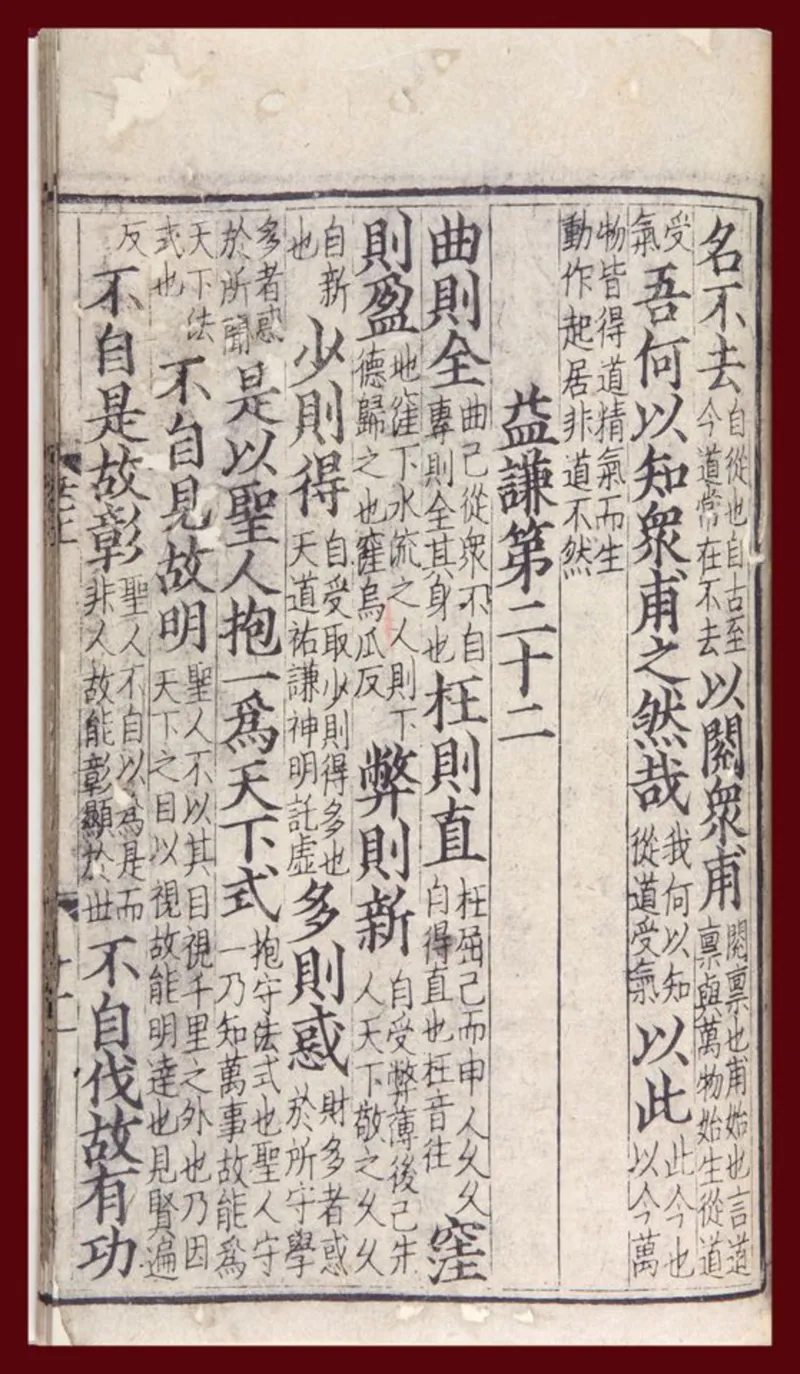 名不去自從也自古至今道常在不去以閱衆甫閱禀也甫始也言道禀與萬物始生從道
受氣吾何以知衆甫之然哉我何以知從道受氣以此此今也以今萬
物皆得道精氣而生動作起居非道不然
益謙第二十二
曲則全曲己從衆不自專則全其身也枉則直枉屈己而申人久久自得直也枉音往窪
則盈地窪下水流之人則下德歸之也窪烏瓜反弊則新自受弊薄後己先人天下敬之久久
自新也少則得自受取少則得多也天道祐謙神明託虛多則惑財多者惑於所守學
多者惑於所聞是以聖人抱一爲天下式抱守法式也聖人守一乃知萬事故能爲
天下法式也不自見故明聖人不以其目視千里之外也乃因天下之目以視故能明達也見賢遍
反不自是故彰聖人不自以爲是而非人故能彰顯於世不自伐故有功